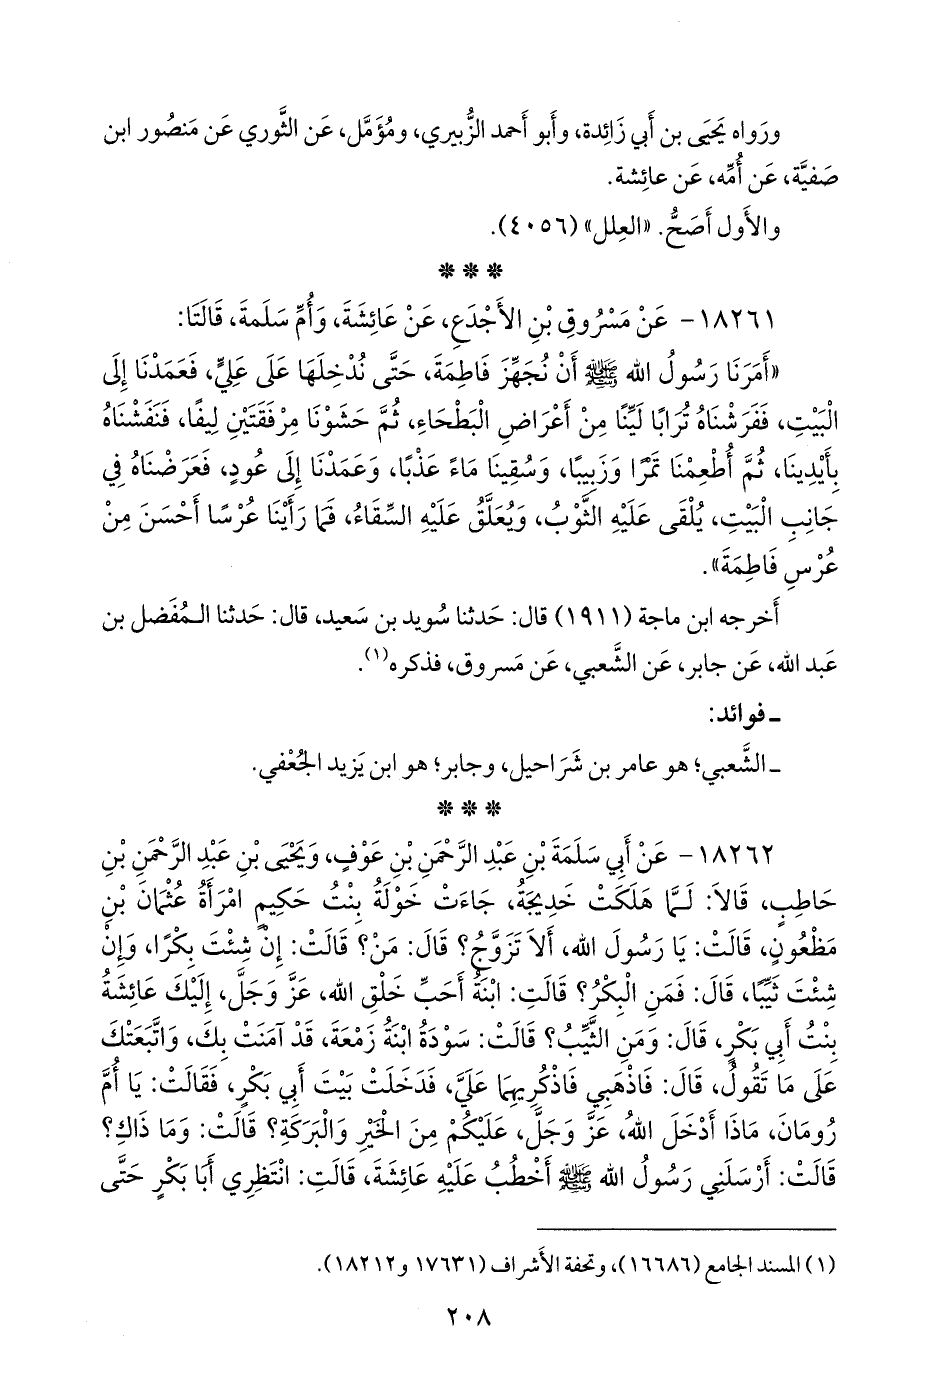 ورَواه يَحيَى بن أَبي زَائِدة، وأَبو أَحمد الزُّبيري، ومُؤَمَّل، عَن الثَّوري عَن مَنصُور ابن
صَفيَّة، عَن أُمِّه، عَن عائِشة.
والأَول أَصَحُّ. «العِلل» (٤٠٥٦).
* * *
١٨٢٦١- عَنْ مَسْرُوقِ بْنِ الأَجْدَعِ، عَنْ عَائِشَةَ، وَأُمِّ سَلَمةَ، قَالَتَا:
«أَمَرَنَا رَسُولُ الله ﷺ أَنْ نُجَهِّزَ فَاطِمَةَ، حَتَّى نُدْخِلَهَا عَلَى عَلِيٍّ، فَعَمَدْنَا إِلَى
الْبَيْتِ، فَفَرَشْنَاهُ تُرَابًا لَيِّنًا مِنْ أَعْرَاضِ الْبَطْحَاءِ، ثُمَّ حَشَوْنَا مِرْفَقَتَيْنِ لِيفًا، فَنَفَشْنَاهُ
بِأَيْدِينَا، ثُمَّ أُطْعِمْنَا تَمْرًا وَزَبِيبًا، وَسُقِينَا مَاءً عَذْبًا، وَعَمَدْنَا إِلَى عُودٍ، فَعَرَضْنَاهُ فِي
جَانِبِ الْبَيْتِ، يُلْقَى عَلَيْهِ الثَّوْبُ، وَيُعَلَّقُ عَلَيْهِ السِّقَاءُ، فَمَا رَأَيْنَا عُرْسًا أَحْسَنَ مِنْ
عُرْسِ فَاطِمَةَ».
أَخرجه ابن ماجة (١٩١١) قال: حَدثنا سُويد بن سَعيد، قال: حَدثنا الـمُفَضل بن
عَبد الله، عَن جابر، عَن الشَّعبي، عَن مَسروق، فذكره(١).
ـ فوائد:
ـ الشَّعبي؛ هو عامر بن شَرَاحيل، وجابر؛ هو ابن يَزيد الجُعْفي.
* * *
١٨٢٦٢- عَنْ أَبِي سَلَمَةَ بْنِ عَبْدِ الرَّحْمَنِ بْنِ عَوْفٍ، وَيَحْيَى بْنِ عَبْدِ الرَّحْمَنِ بْنِ
حَاطِبٍ، قَالاَ: لَـمَّا هَلَكَتْ خَدِيجَةُ، جَاءَتْ خَوْلَةُ بِنْتُ حَكِيمٍ امْرَأَةُ عُثْمَانَ بْنِ
مَظْعُونٍ، قَالَتْ: يَا رَسُولَ الله، أَلاَ تَزَوَّجُ؟ قَالَ: مَنْ؟ قَالَتْ: إِنْ شِئْتَ بِكْرًا، وَإِنْ
شِئْتَ ثَيِّبًا، قَالَ: فَمَنِ الْبِكْرُ؟ قَالَتِ: ابْنَةُ أَحَبِّ خَلْقِ الله، عَزَّ وَجَلَّ، إِلَيْكَ عَائِشَةُ
بِنْتُ أَبِي بَكْرٍ، قَالَ: وَمَنِ الثَّيِّبُ؟ قَالَتْ: سَوْدَةُ ابْنَةُ زَمْعَةَ، قَدْ آمَنَتْ بِكَ، وَاتَّبَعَتْكَ
عَلَى مَا تَقُولُ، قَالَ: فَاذْهَبِي فَاذْكُرِيهِمَا عَلَيَّ، فَدَخَلَتْ بَيْتَ أَبِي بَكْرٍ، فَقَالَتْ: يَا أُمَّ
رُومَانَ، مَاذَا أَدْخَلَ اللهُ، عَزَّ وَجَلَّ، عَلَيْكُمْ مِنَ الْخَيْرِ وَالْبَرَكَةِ؟ قَالَتْ: وَمَا ذَاكِ؟
قَالَتْ: أَرْسَلَنِي رَسُولُ الله ﷺ أَخْطُبُ عَلَيْهِ عَائِشَةَ، قَالَتِ: انْتَظِرِي أَبَا بَكْرٍ حَتَّى
(١) المسند الجامع (١٦٦٨٦)، وتحفة الأَشراف (١٧٦٣١ و١٨٢١٢).
٢٠٨